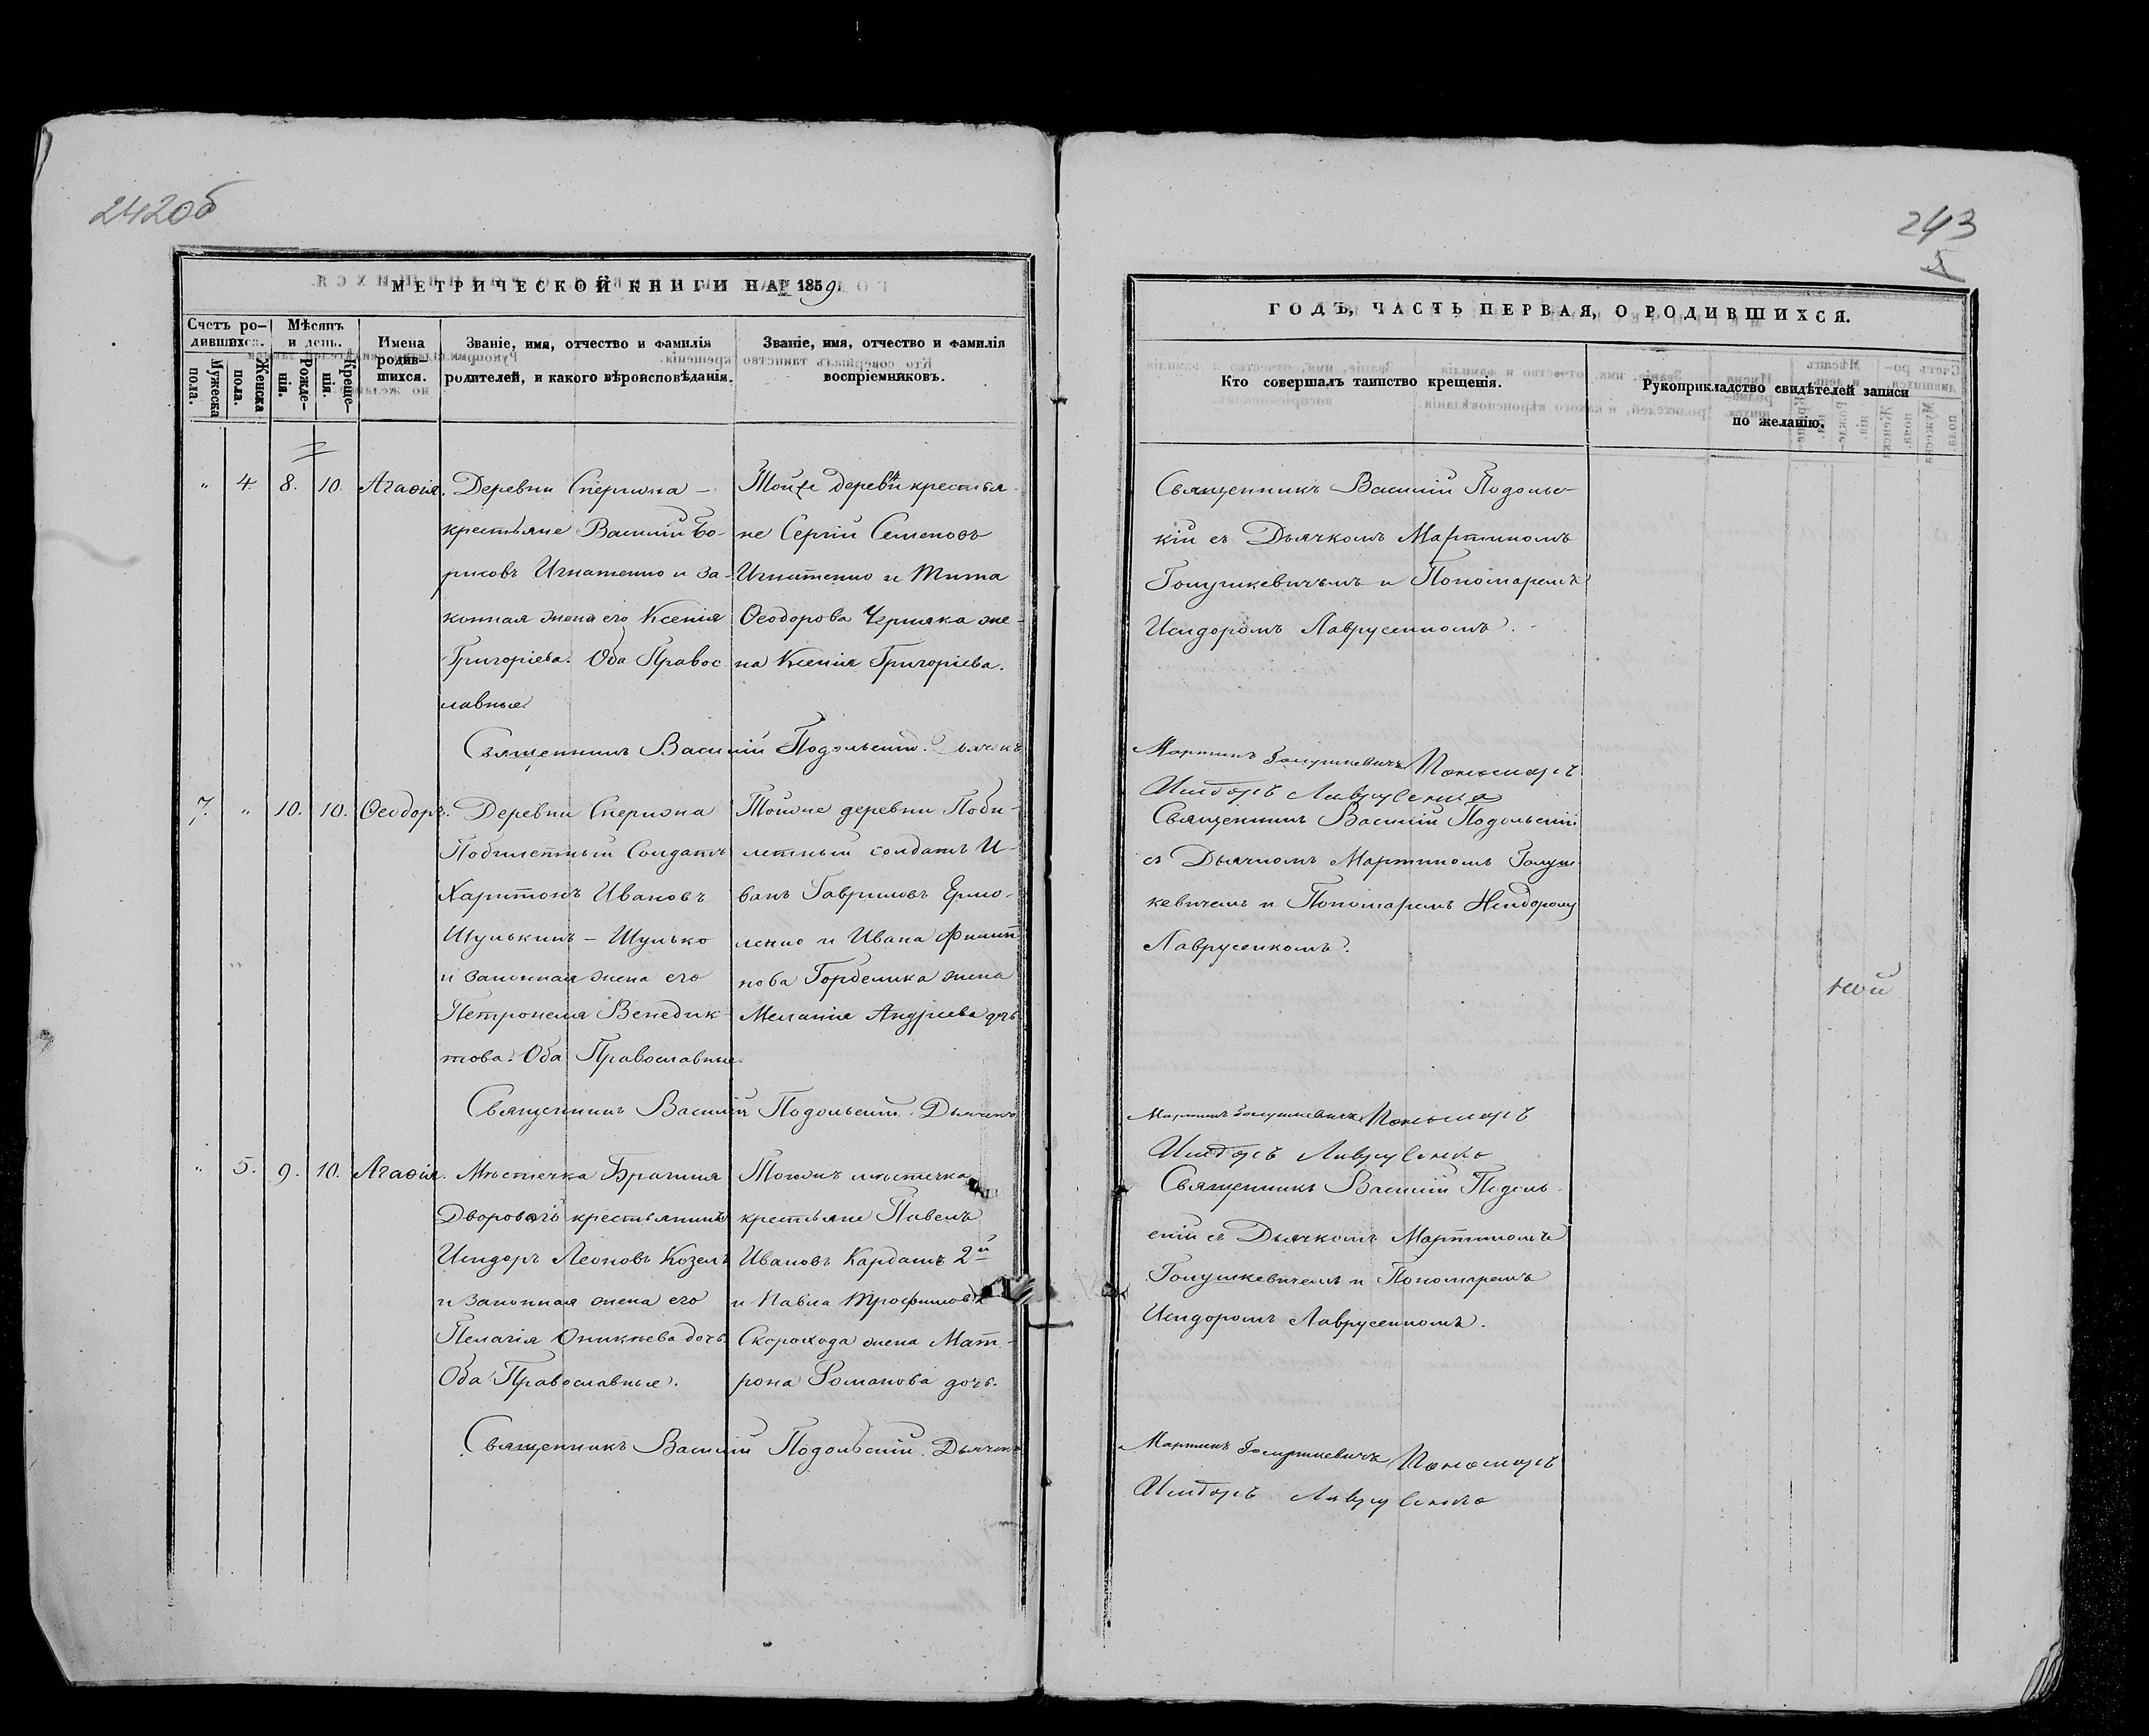 242об
МЕТРИЧЕСКОЙ КНИГИ НА 1859
Счетъ ро-
дившихся.
Мужеска
пола.
Женска
пола.
Мѣсяцъ
и день.
Рожде-
нія.
Креще-
нія.
Имена
родив-
шихся.
Званіе, имя, отчество и фамилія
родителей, и какого вѣроисповѣданія.
Званіе, имя, отчество и фамилія
воспріемниковъ.
" 4. 8. 10. Агафія.
Деревни Спершиа
крестьяне Василій Бо-
рисовъ Игнатенко и за-
конная жена его Ксенія
Григоріева. Оба Правос
лавные.
Тойже деревни крестья-
не Сергій Семеновъ
Игнатенко и Тита
Ѳеодорова Черняка же-
на Ксенія Григоріева.
Священникъ Василій Подольскій. Дьячекъ
7. " 10. 10. Ѳеодоръ.
Деревни
Побилетный Солдатъ
Харитонъ Ивановъ
Шулькинъ – Шулько
и законная жена его
Петронеля Венедик-
това. Оба Православные.
Тойже деревни Поби-
летный солдатъ И-
ванъ Гавриловъ Ермо-
ленко и Ивана Филип
пова Горделика жена
Меланія Андреева дчь
Священникъ Василій Подольскій. Дьячекъ
" 5. 9. 10. Агафія.
Мѣстечка Брагина
Дворовый крестьянинъ
Исидоръ Леоновъ Козелъ
и законная жена его
Пелагія Оникѣева дочь.
Оба Православные.
Тогожъ мѣстечка
крестьяне Павелъ
Ивановъ Кардашъ 2й
и Павла Трофимова
Скорохода жена Мат-
рона Романова дочь.
Священникъ Василій Подольскій. Дьячекъ
243
ГОДЪ, ЧАСТЬ ПЕРВАЯ, О РОДИВШИХСЯ.
Кто совершалъ таинство крещенія.
Рукоприкладство свидѣтелей записи
по желанію.
Священникъ Василій Подольс-
кій съ Дьячкомъ Мартиномъ
Голушкевичемъ и Пономаремъ
Исидоромъ Лаврусенкомъ.
Мартинъ Голушкевичъ Пономарь
Исидоръ Лаврусенко
Священникъ Василій Подольскій
съ Дьячкомъ Мартиномъ Голуш
кевичемъ и Пономаремъ Исидоромъ
Лаврусенкомъ.
Мартинъ Голушкевичъ Пономарь
Исидоръ Лаврусенко
Священникъ Василій Подоль
скій съ Дьячкомъ Мартиномъ
Голушкевичемъ и Пономаремъ
Исидоромъ Лаврусенкомъ.
Мартинъ Голушкевичъ Пономарь
Исидоръ Лаврусенко